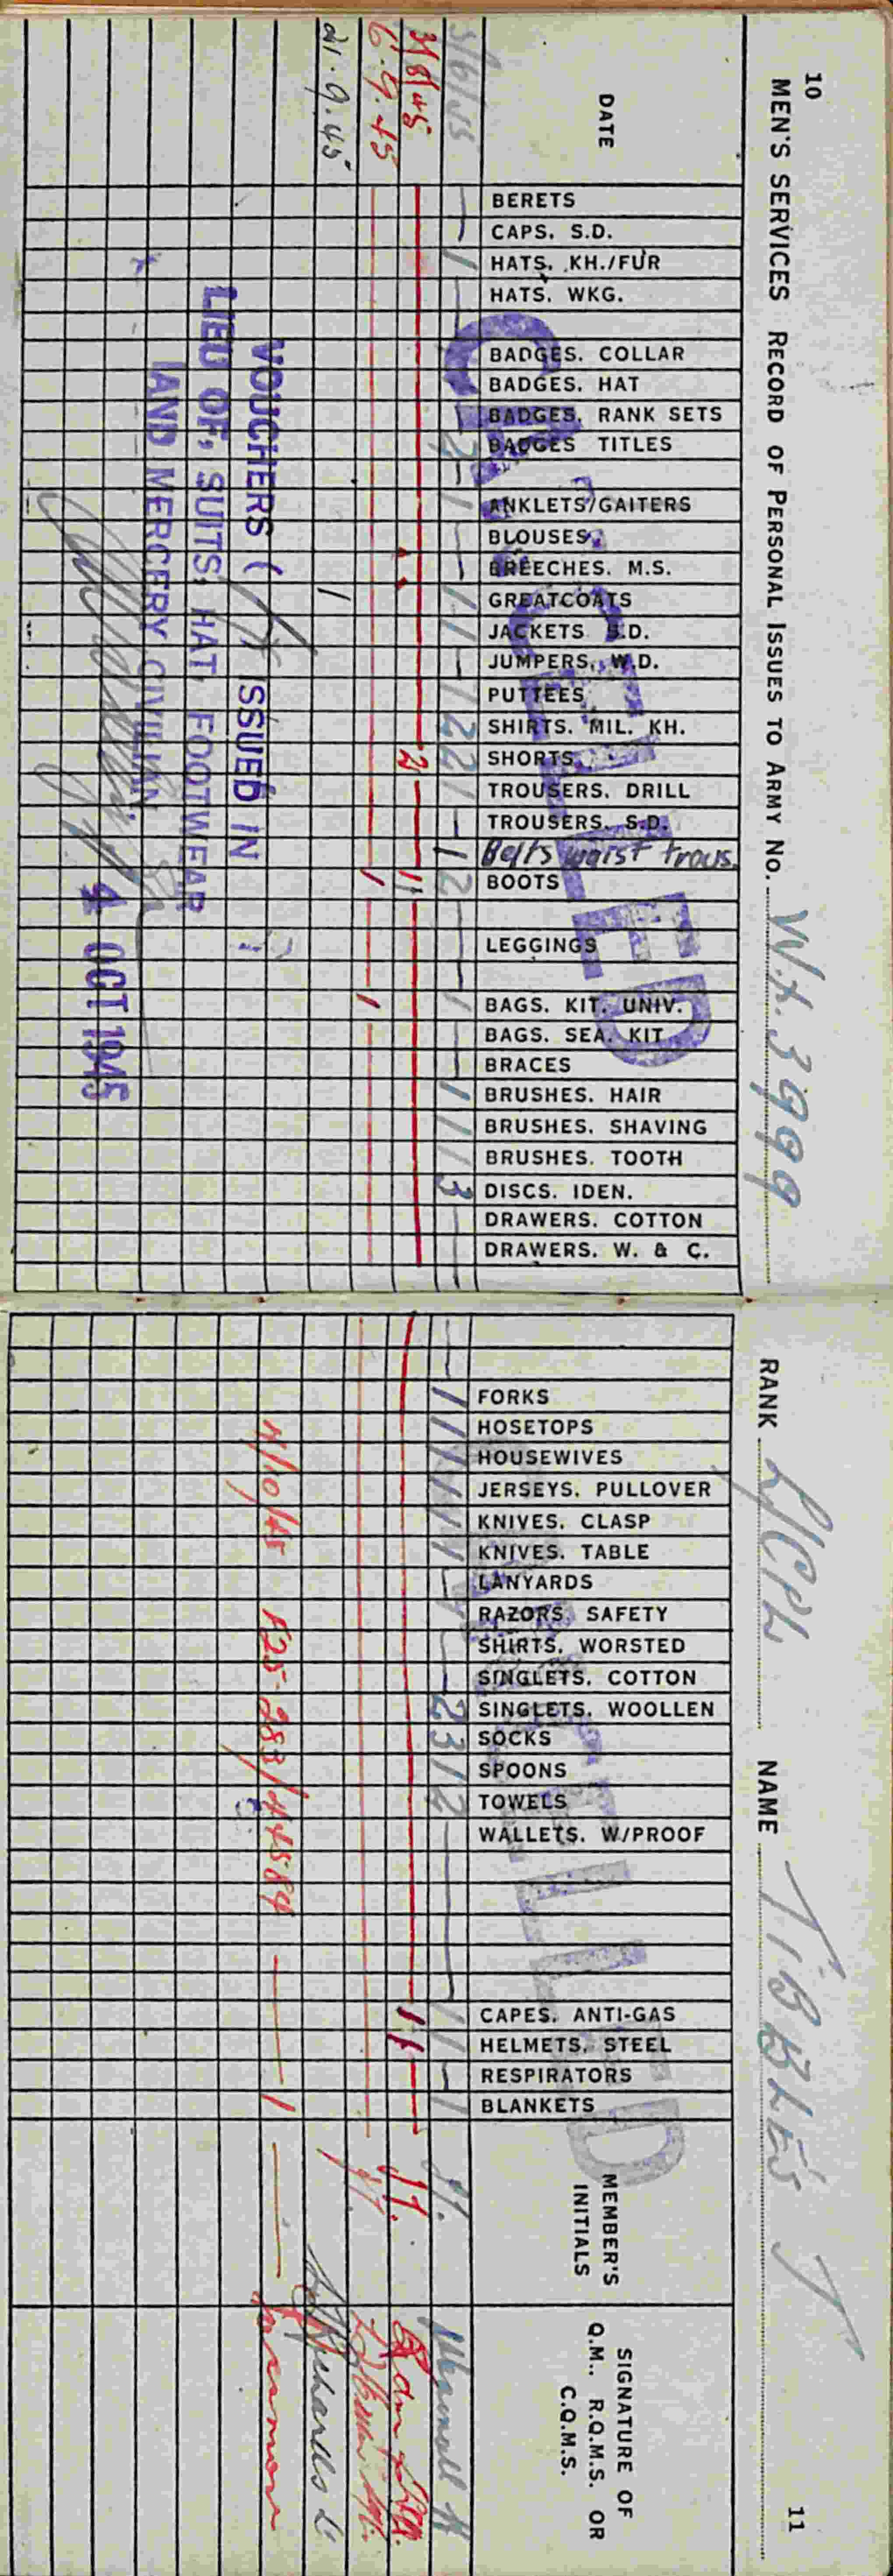 10
MEN'S SERVICES RECORD OF PERSONAL ISSUES TO ARMY NO. W.X. 3999
DATE
BERETS
CAPS. S.D.
HATS. KH./FUR
HATS. WKG.
BADGES. COLLAR
BADGES. HAT
BADGES. RANK SETS
BADGES TITLES
ANKLETS/GAITERS
BLOUSES
BREECHES. M.S.
GREATCOATS
JACKETS S.D.
JUMPERS. W.D.
PUTTEES
SHIRTS. MIL. KH.
SHORTS
TROUSERS. DRILL
TROUSERS. S.D.
Belts waist trous.
BOOTS
LEGGINGS
BAGS. KIT. UNIV.
BAGS. SEA. KIT
BRACES
BRUSHES. HAIR
BRUSHES. SHAVING
BRUSHES. TOOTH
DISCS. IDEN.
DRAWERS. COTTON
DRAWERS. W. & C.
CANCELLED
1 2 1 1 1 1 2 2 1 1 2 1 1 1 1 3
2 1 1
6.9.45 1 1
21.9.45 1
VOUCHERS ( ISSUED IN
LIEU OF, SUITS, HAT, FOOTWEAR
AND MERCERY CIVILIAN.
4 OCT 1945
11
RANK L/CPL NAME TIBBLES J
FORKS
HOSETOPS
HOUSEWIVES
JERSEYS. PULLOVER
KNIVES. CLASP
KNIVES. TABLE
LANYARDS
RAZORS. SAFETY
SHIRTS. WORSTED
SINGLETS. COTTON
SINGLETS. WOOLLEN
SOCKS
SPOONS
TOWELS
WALLETS. W/PROOF
CAPES. ANTI-GAS
HELMETS. STEEL
RESPIRATORS
BLANKETS
MEMBER'S
INITIALS
SIGNATURE OF
Q.M., R.Q.M.S. OR
C.Q.M.S.
CANCELLED
1 1 1 1 1 1 1 2 3 1 2 1 1 1 J.T.
1 1 J.T.
J.T.
4/10/45 1